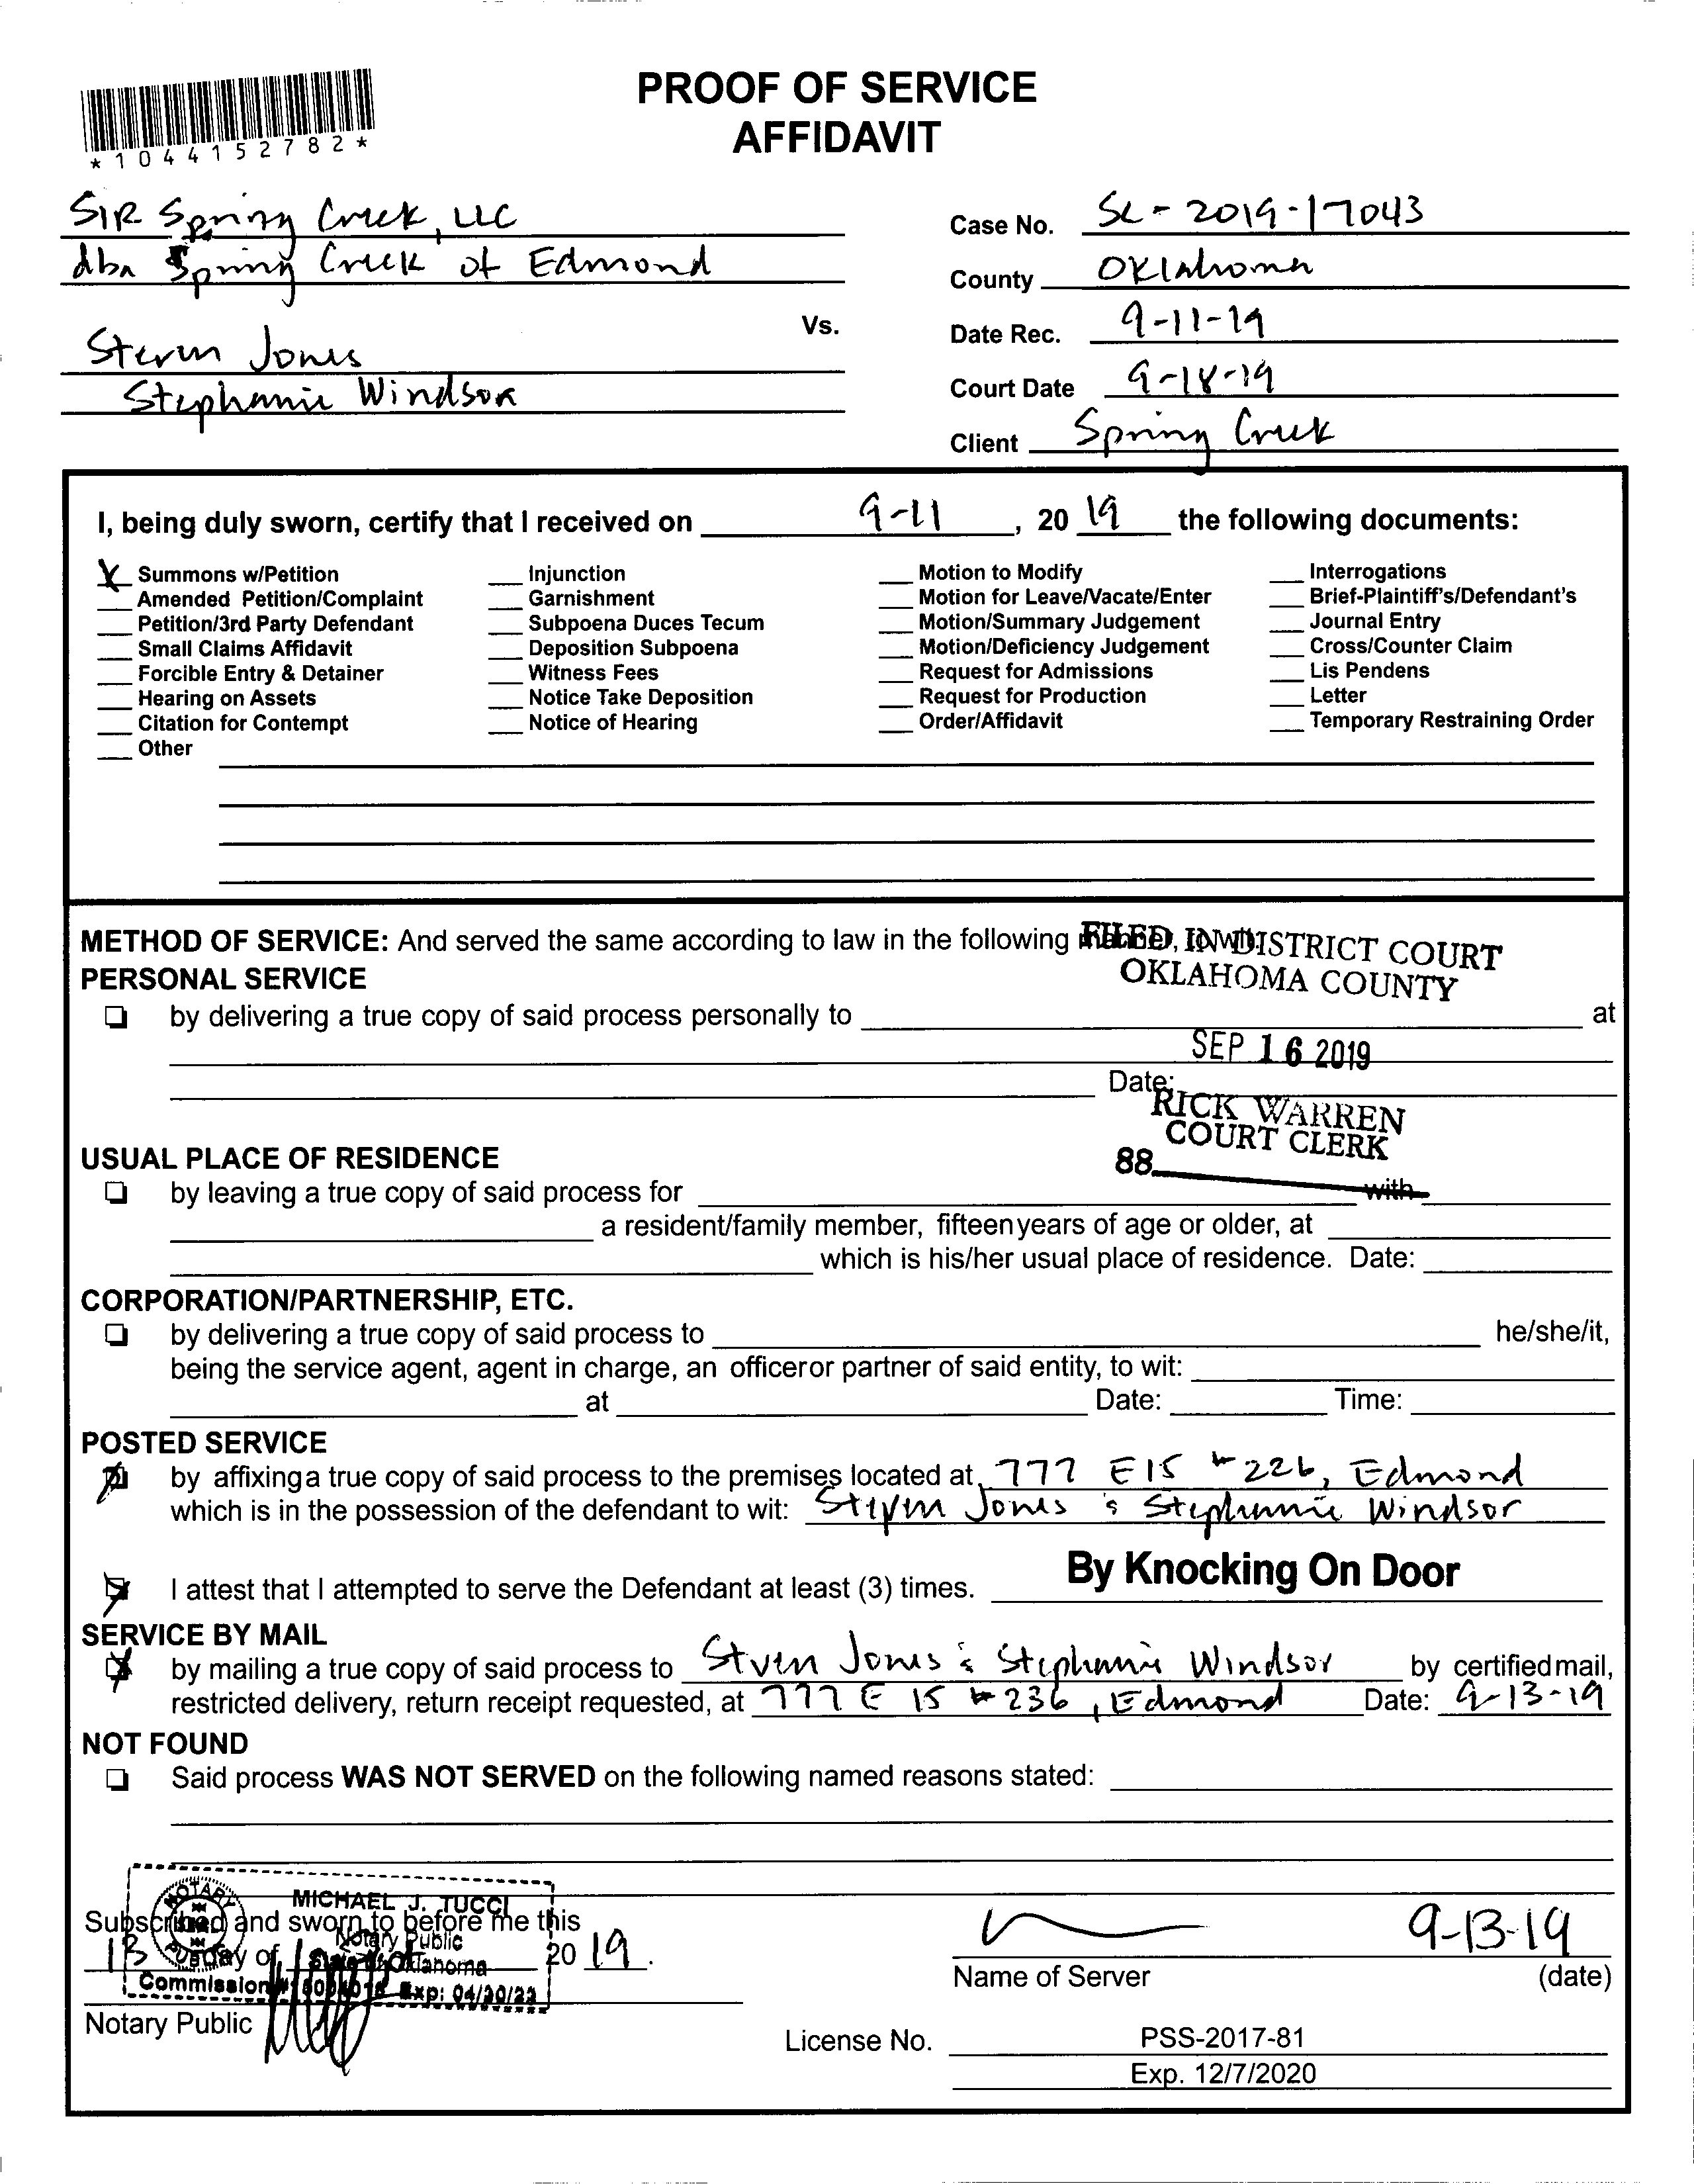 PROOF OF SERVICE
AFFIDAVIT
*1044152782*
SIR Spring Creek, LLC
dba Spring Creek of Edmond
Vs.
Steven Jones
Stephanie Windsor
Case No. SC-2019-17043
County Oklahoma
Date Rec. 9-11-19
Court Date 9-18-19
Client Spring Creek
I, being duly sworn, certify that I received on 9-11, 20 19 the following documents:
X Summons w/Petition
Amended Petition/Complaint
Petition/3rd Party Defendant
Small Claims Affidavit
Forcible Entry & Detainer
Hearing on Assets
Citation for Contempt
Other
Injunction
Garnishment
Subpoena Duces Tecum
Deposition Subpoena
Witness Fees
Notice Take Deposition
Notice of Hearing
Motion to Modify
Motion for Leave/Vacate/Enter
Motion/Summary Judgement
Motion/Deficiency Judgement
Request for Admissions
Request for Production
Order/Affidavit
Interrogations
Brief-Plaintiff's/Defendant's
Journal Entry
Cross/Counter Claim
Lis Pendens
Letter
Temporary Restraining Order
METHOD OF SERVICE: And served the same according to law in the following manner, to wit:
FILED IN DISTRICT COURT
OKLAHOMA COUNTY
PERSONAL SERVICE
by delivering a true copy of said process personally to at
SEP 16 2019
Date:
RICK WARREN
COURT CLERK
88
USUAL PLACE OF RESIDENCE
by leaving a true copy of said process for with
a resident/family member, fifteen years of age or older, at
which is his/her usual place of residence. Date:
CORPORATION/PARTNERSHIP, ETC.
by delivering a true copy of said process to he/she/it,
being the service agent, agent in charge, an officer or partner of said entity, to wit:
at Date: Time:
POSTED SERVICE
by affixing a true copy of said process to the premises located at 777 E 15 # 226, Edmond
which is in the possession of the defendant to wit: Steven Jones & Stephanie Windsor
I attest that I attempted to serve the Defendant at least (3) times. By Knocking On Door
SERVICE BY MAIL
by mailing a true copy of said process to Steven Jones & Stephanie Windsor by certified mail,
restricted delivery, return receipt requested, at 777 E 15 # 236, Edmond Date: 9-13-19
NOT FOUND
Said process WAS NOT SERVED on the following named reasons stated:
MICHAEL J. TUCCI
Notary Public
State of Oklahoma
Subscribed and sworn to before me this
13 day of 20 19.
NOTARY PUBLIC
Notary Public
9-13-19
Name of Server (date)
License No. PSS-2017-81
Exp. 12/7/2020